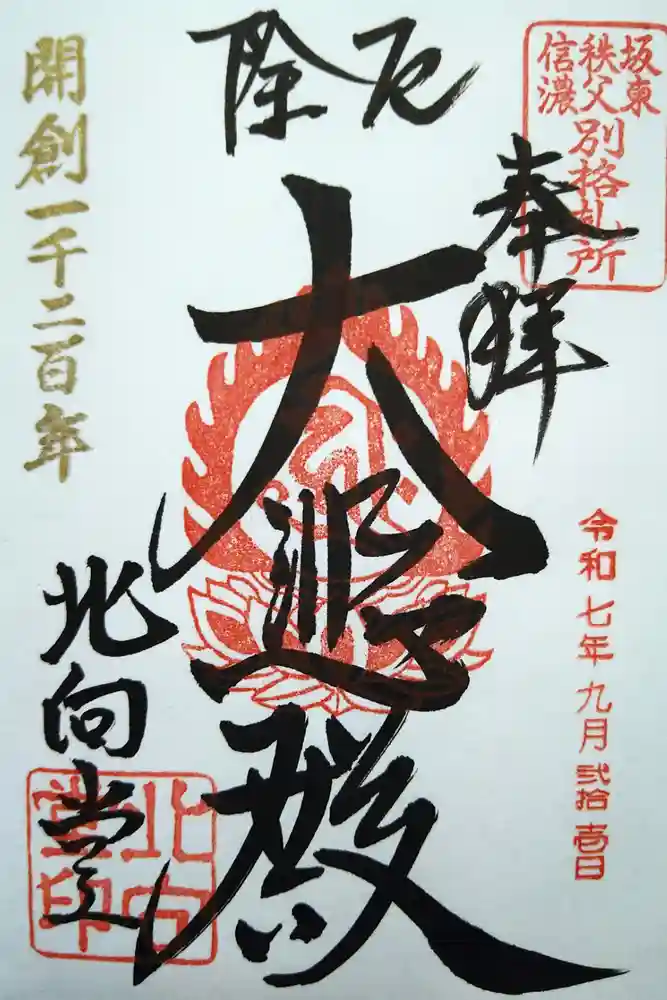 坂東
秩父
信濃
別格札所
奉拝
令和七年九月弐拾壱日
厄除
大悲殿
開創一千二百年
北向堂
北向
堂印